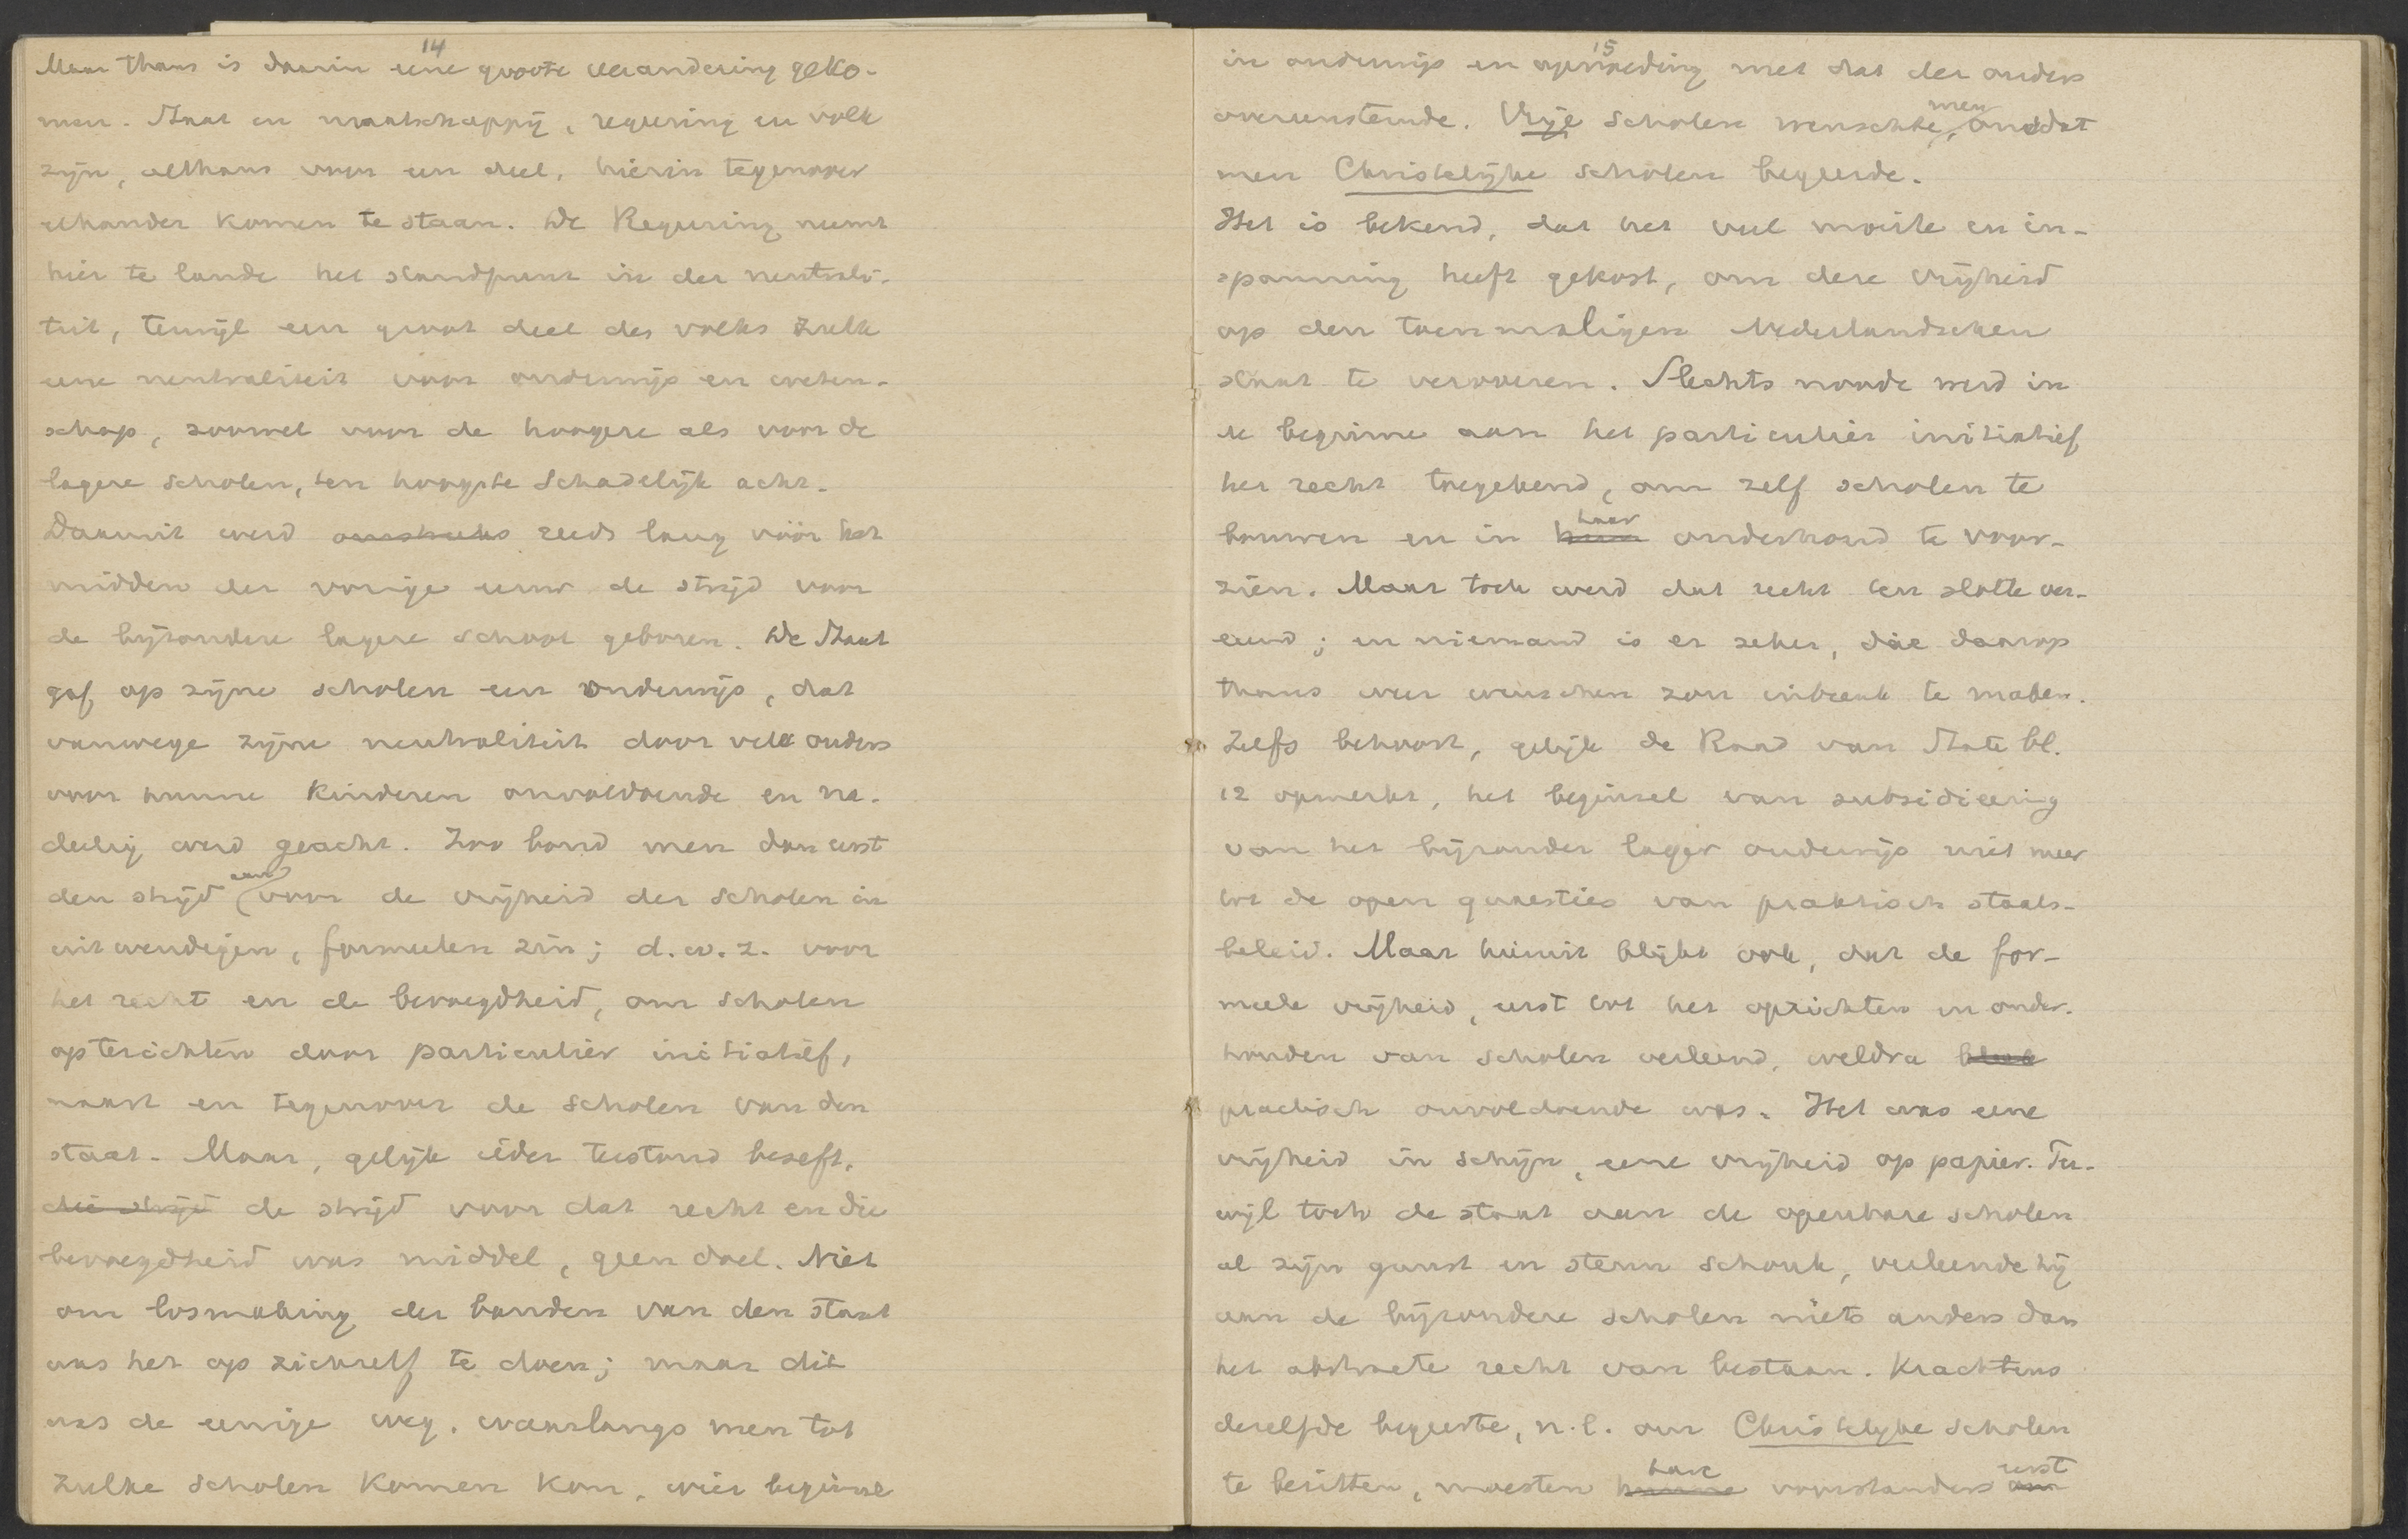 14
Maar thans is daarin eene groote verandering geko-
men. Staat en maatschappij, regeering en volk
zijn, althans voor een deel, hierin tegenover
elkander komen te staan. De Regeering neemt
hier te lande het standpunt in der neutrali-
teit, terwijl een groot deel des volks zulk
eene neutraliteit voor onderwijs en weten-
schap, zoowel voor de hoogere als voor de
lagere scholen, ten hoogste schadelijk acht.
Daaruit werd reeds lang vóór het
midden der vorige eeuw de strijd voor
de bijzondere lagere school geboren. De Staat
gaf op zijne scholen een onderwijs, dat
vanwege zijne neutraliteit door vele ouders
voor hunne kinderen onvoldoende en na-
deelig werd geacht. Zoo bond men dan eerst
den strijd aan voor de vrijheid der scholen in
uitwendigen, formeelen zin; d.w.z. voor
het recht en de bevoegdheid, om scholen
opterichten door particulier initiatief,
naast en tegenover de scholen van den
staat. Maar, gelijk ieder terstond beseft,
die strijd de strijd voor dat recht en die
bevoegdheid was middel, geen doel. Niet
om losmaking der banden van den staat
was het op zichzelf te doen; maar dit
was de eenige weg, waarlangs men tot
zulke scholen komen kon, wier beginsel
15
in onderwijs en opvoeding met dat der ouders
overeenstemde. Vrije scholen wenschte men, omdat
men Christelijke scholen begeerde.
Het is bekend, dat het veel moeite en in-
spanning heeft gekost, om deze vrijheid
op den toenmaligen Nederlandschen
staat te veroveren. Slechts noode werd in
de beginne aan het particulier initiatief
het recht toegekend, om zelf scholen te
bouwen en in hun haar onderhoud te voor-
zien. Maar toch werd dat recht ten slotte ver-
leend; en niemand is er zeker, die daarop
thans weer wenschen zou inbreuk te maken.
Zelfs behoort, gelijk de Raad van State bl.
12 opmerkt, het beginsel van subsidieering
van het bijzonder lager onderwijs niet meer
tot de open quaesties van praktisch staats-
beleid. Maar hieruit blijkt ook, dat de for-
meele vrijheid, eerst tot het oprichten en onder-
houden van scholen verleend, weldra bleek
practisch onvoldoende was. Het was eene
vrijheid in schijn, eene vrijheid op papier. Ter-
wijl toch de staat aan de openbare scholen
al zijn gunst en steun schonk, verleende hij
aan de bijzondere scholen niets anders dan
het abstracte recht van bestaan. Krachtens
dezelfde begeerte, n.l. om Christelijke scholen
te bezitten, moesten hunne hare voorstanders om eerst